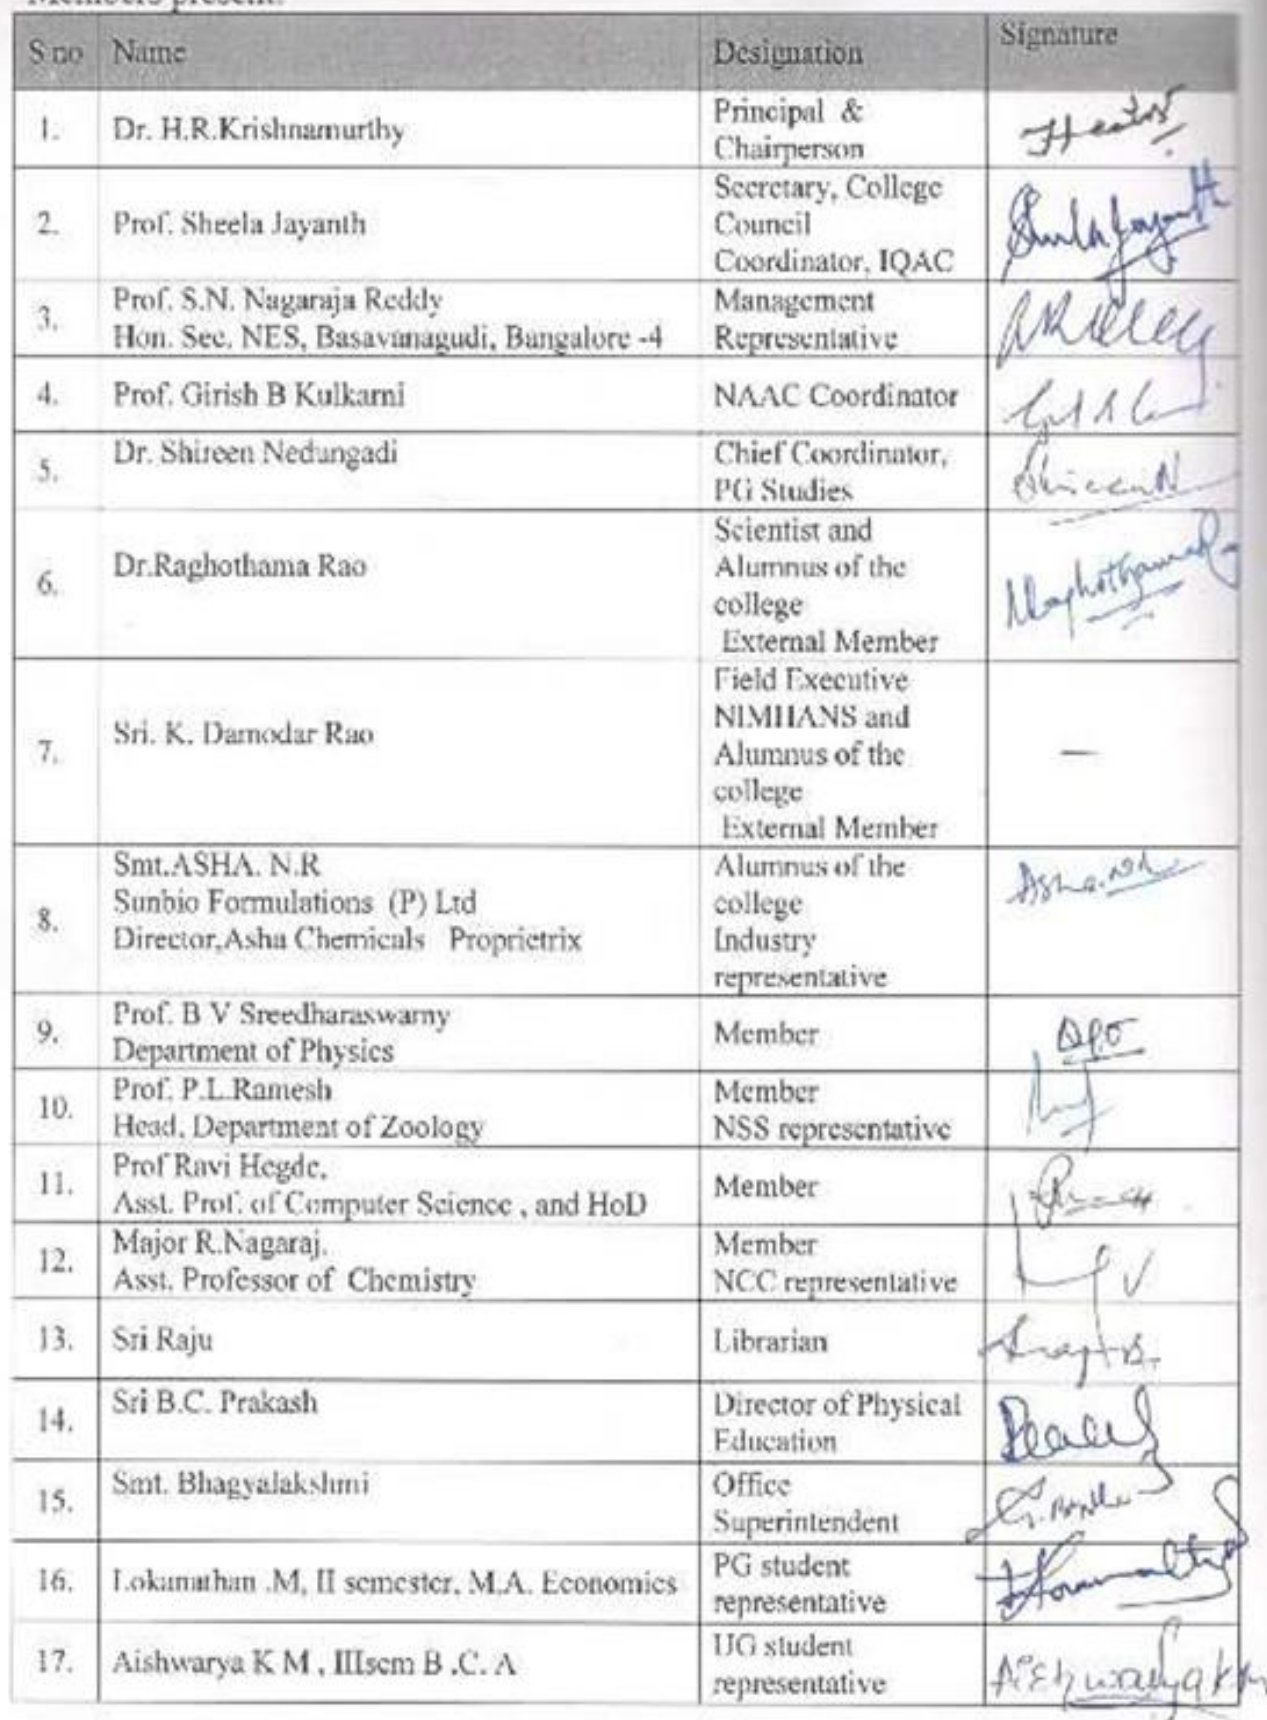 Members present:
S no Name Designation Signature
1. Dr. H.R.Krishnamurthy Principal &
Chairperson
2. Prof. Sheela Jayanth Secretary, College
Council
Coordinator, IQAC
Sheela Jayanth
3. Prof. S.N. Nagaraja Reddy Management
Hon. Sec. NES, Basavanagudi, Bangalore -4 Representative
4. Prof. Girish B Kulkarni NAAC Coordinator
5. Dr. Shireen Nedungadi Chief Coordinator,
PG Studies
Shireen N
6. Dr.Raghothama Rao Scientist and
Alumnus of the
college
External Member
Raghothama R
7. Sri. K. Damodar Rao Field Executive
NIMHANS and
Alumnus of the
college
External Member
—
8. Smt.ASHA. N.R Alumnus of the
Sunbio Formulations (P) Ltd college
Director,Asha Chemicals Proprietrix Industry
representative
Asha.NR
9. Prof. B V Sreedharaswamy Member
Department of Physics
10. Prof. P.L.Ramesh Member
Head, Department of Zoology NSS representative
11. Prof Ravi Hegde, Member
Asst. Prof. of Computer Science , and HoD
12. Major R.Nagaraj, Member
Asst. Professor of Chemistry NCC representative
13. Sri Raju Librarian
14. Sri B.C. Prakash Director of Physical
Education
15. Smt. Bhagyalakshmi Office
Superintendent
16. Lokanathan .M, II semester, M.A. Economics PG student
representative
17. Aishwarya K M , IIIsem B .C. A UG student
representative
Aishwarya K M